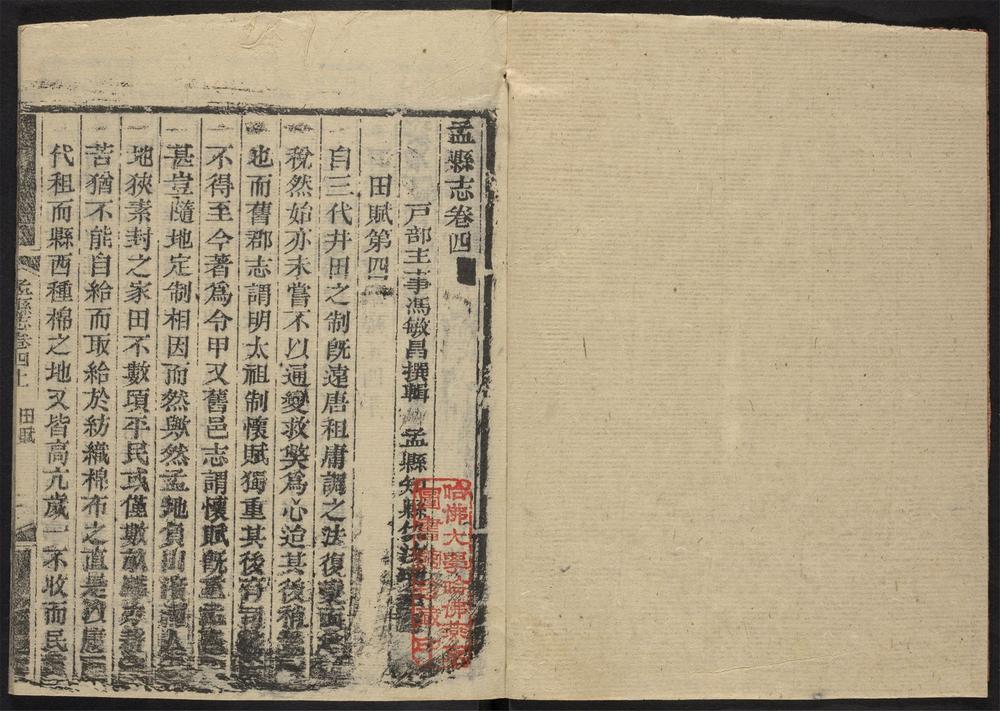 孟縣志卷四
戸部主事馮敏昌撰輯 孟縣知縣
田賦第四
自三代井田之制旣遠唐租庸調之法復變而
稅然始亦未嘗不以通變救獘爲心迨其後稍
也而舊郡志謂明太祖制懷賦獨重其後有司
不得至今著爲令甲又舊邑志謂懷賦旣重孟
甚豈隨地定制相因而然與然孟地負山濱河人
地狹素封之家田不數頃平民或僅數畝
苦猶不能自給而取給於紡織棉布之直是
代租而縣西種棉之地又皆高亢歲一不收而民
孟縣志卷四上 田賦
哈佛大學哈佛燕京
圖書館珍藏印